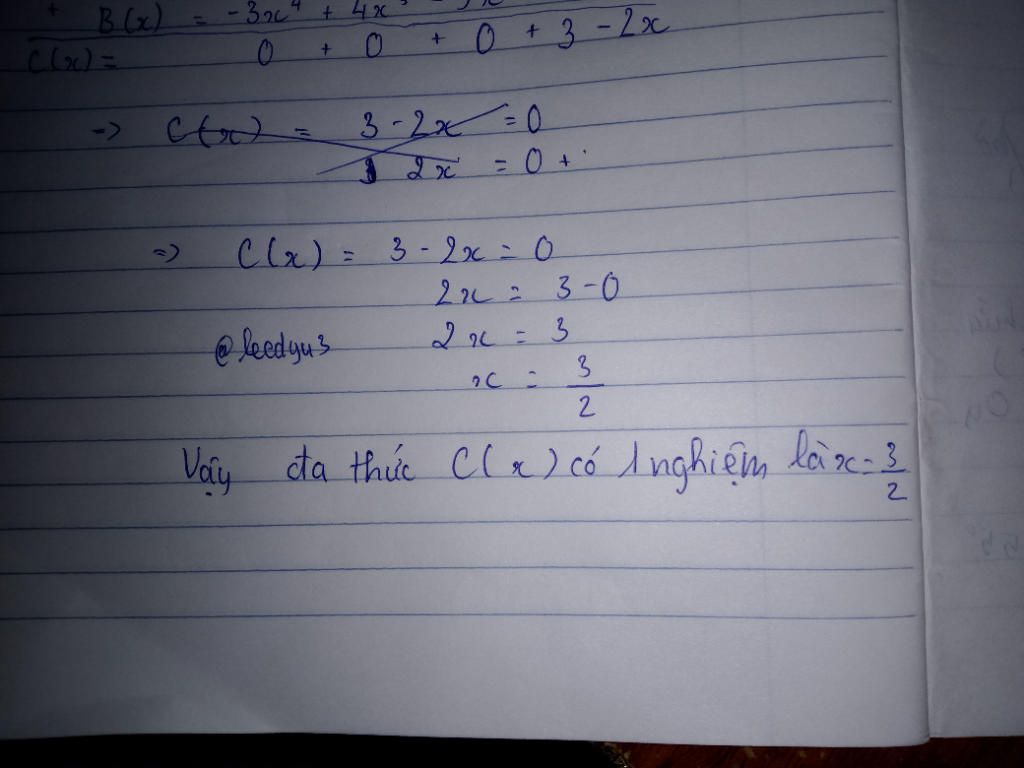 + B(x) = -3x⁴ + 4x³
C(x) = 0 + 0 + 0 + 3 - 2x
=> C(x) = 3 - 2x = 0
2x = 0 +
=> C(x) = 3 - 2x = 0
2x = 3 - 0
@leedyu3 2x = 3
x = 3/2
Vậy đa thức C(x) có 1 nghiệm là x = 3/2